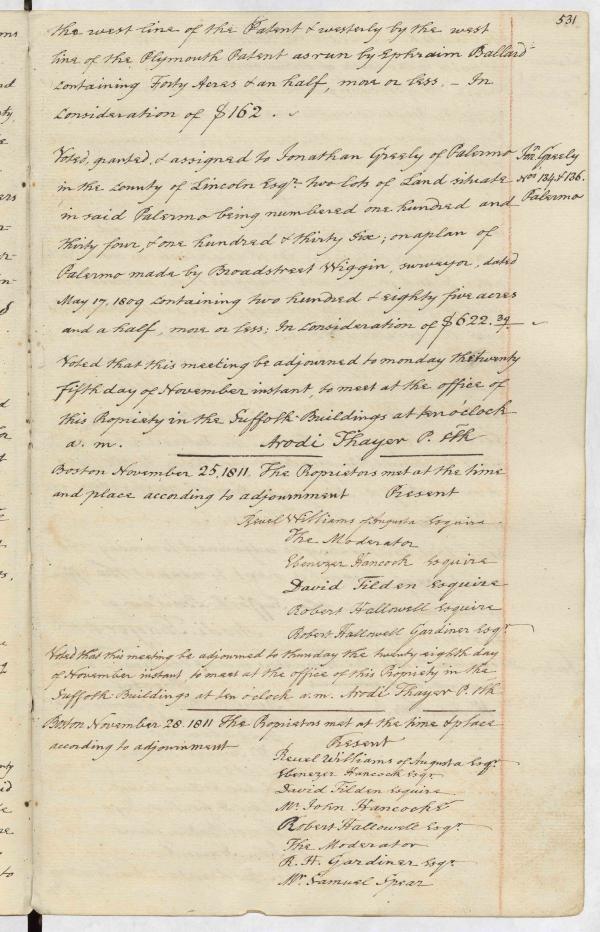 531
the west line of the Patent & westerly by the west
line of the Plymouth Patent as run by Ephraim Ballard
containing Forty Acres & an half, more or less. – In
consideration of $162.
Voted, granted, & assigned to Jonathan Greely of Palermo
in the county of Lincoln Esqr. two lots of Land situate
in said Palermo being numbered one hundred and
thirty four, & one hundred & thirty six; on a plan of
Palermo made by Broadstreet Wiggin, surveyor, dated
May 17, 1809 containing two hundred & eighty five acres
and a half, more or less: In consideration of $622.39
Jon. Greely
Nos. 134 & 136.
Palermo
Voted that this meeting be adjourned to monday the twenty
fifth day of November instant, to meet at the office of
this Propriety in the Suffolk-Buildings at ten o'clock
a. m. Arodi Thayer P. Clk
Boston November 25, 1811. The Proprietors met at the time
and place according to adjournment Present
Reuel Williams of Augusta Esquire
The Moderator
Ebenezer Hancock Esquire
David Tilden Esquire
Robert Hallowell Esquire
Robert Hallowell Gardiner Esqr.
Voted that this meeting be adjourned to thursday the twenty eighth day
of November instant to meet at the office of this Propriety in the
Suffolk Buildings at ten o'clock a.m. Arodi Thayer P. Clk
Boston November 28. 1811 The Proprietors met at the time & place
according to adjournment Present
Reuel Williams of Augusta Esqr.
Ebenezer Hancock Esqr.
David Tilden Esquire
Mr. John Hancock
Robert Hallowell Esqr.
The Moderator
R. H. Gardiner Esqr.
Mr. Samuel Spear